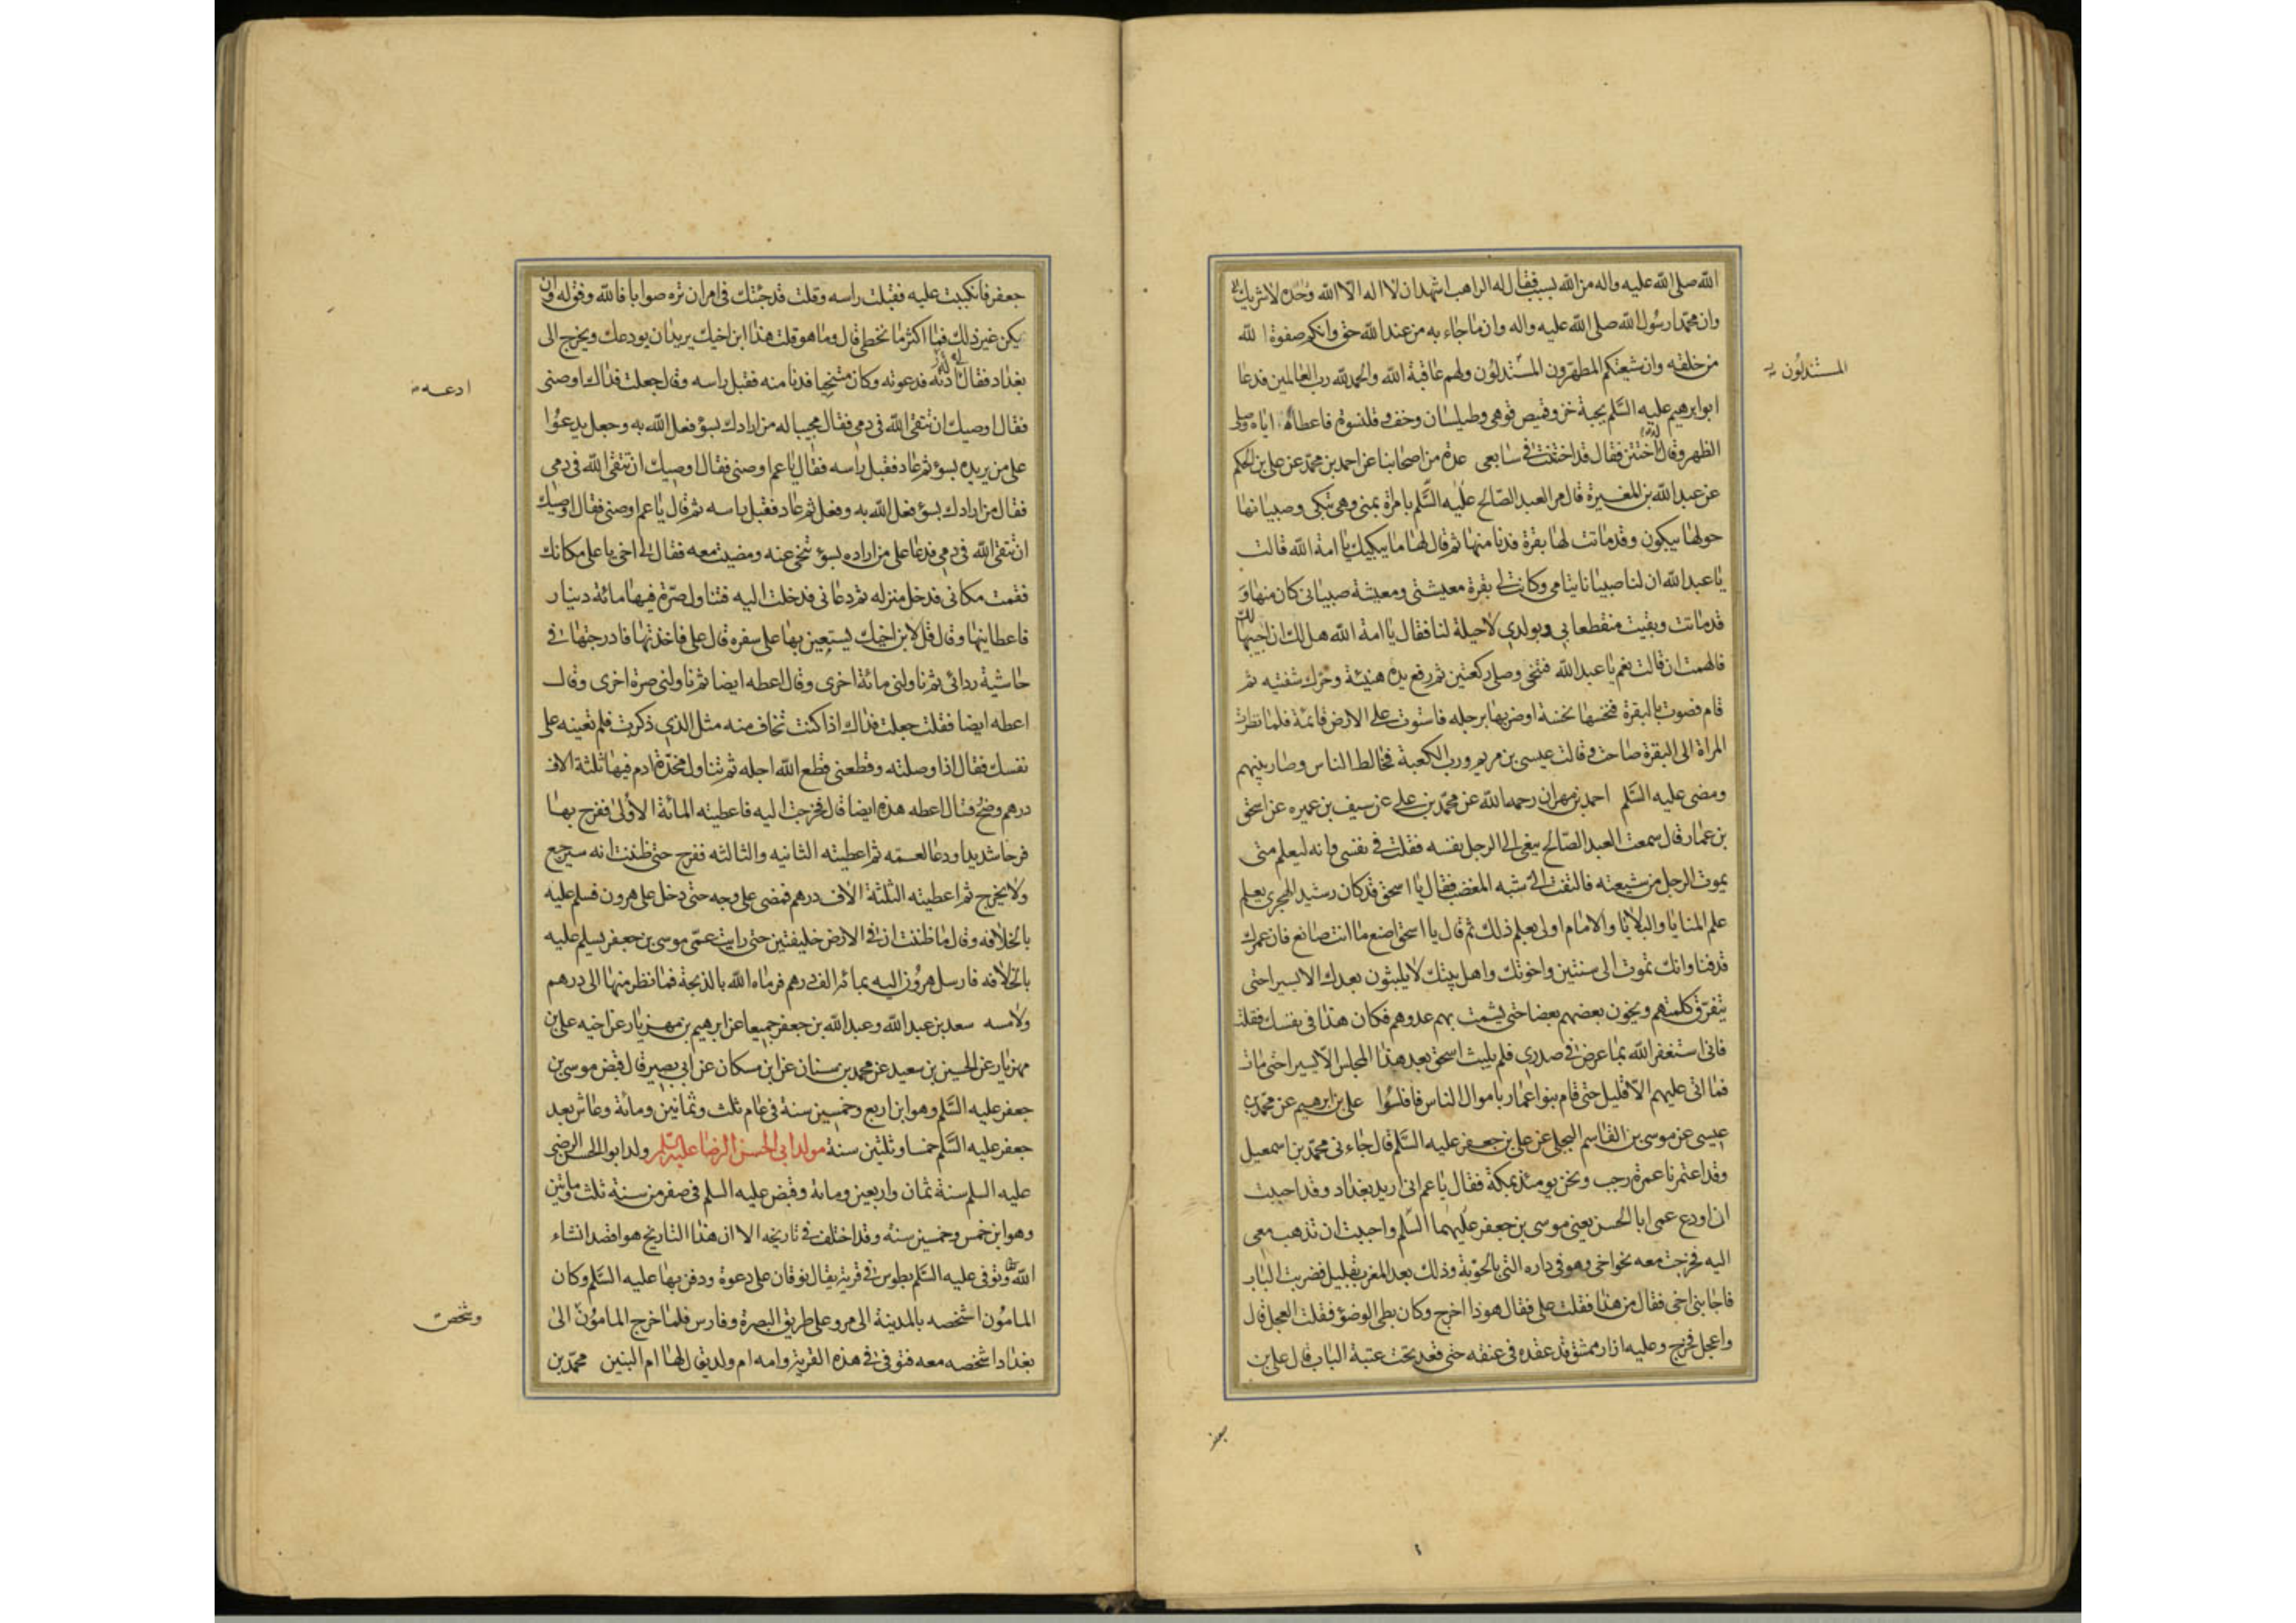 الله صلى الله عليه واله من الله بسبب فقال له الراهب اشهد ان لا اله الا الله وحده لا شريك له
وان محمدا رسول الله صلى الله عليه واله وان ما جاء به من عند الله حق وانكم صفوة الله
من خلقه وان شيعتكم المطهرون المستدلون ولهم عاقبة الله والحمد لله رب العالمين فدعا
المستذلون
ابو ابرهيم عليه السلم بجبة خز وقميص قوهي وطيلسان وخف وقلنسوة فاعطاه اياه وصلى
الظهر وقال له اختتن فقال قد اختتنت في سابعي عدة من اصحابنا عن احمد بن محمد عن علي بن الحكم
عن عبد الله بن المغيرة قال مر العبد الصالح عليه السلم بامراة بمنى وهي تبكي وصبيانها
حولها يبكون وقد ماتت لها بقرة فدنا منها ثم قال لها ما يبكيك يا امة الله قالت
يا عبد الله ان لنا صبيانا يتامى وكانت لي بقرة معيشتي ومعيشة صبياني كان منها و
قد ماتت وبقيت منقطعا بي وبولدي لا حيلة لنا فقال يا امة الله هل لك ان احييها لك
فالهمت ان قالت نعم يا عبد الله فتنحى وصلى ركعتين ثم رفع يده هنيئة وحرك شفتيه ثم
قام فصوت بالبقرة فنخسها نخسة او ضربها برجله فاستوت على الارض قائمة فلما نظرت
المراة الى البقرة صاحت وقالت عيسى بن مريم ورب الكعبة فخالط الناس وصار بينهم
ومضى عليه السلم احمد بن مهران رحمه الله عن محمد بن علي عن سيف بن عميره عن اسحق
بن عمار قال سمعت العبد الصالح ينعى الى الرجل نفسه فقلت في نفسي وانه ليعلم متى
يموت الرجل من شيعته فالتفت الي شبه المغضب فقال يا اسحق قد كان رشيد الهجري يعلم
علم المنايا والبلايا والامام اولى بعلم ذلك ثم قال يا اسحق اصنع ما انت صانع فان عمرك
قد فنا وانك تموت الى سنتين واخوتك واهل بيتك لا يلبثون بعدك الا يسيرا حتى
يتفرق كلمتهم ويخون بعضهم بعضا حتى يشمت بهم عدوهم فكان هذا في نفسك فقلت
فاني استغفر الله بما عرض في صدري فلم يلبث اسحق بعد هذا المجلس الا يسيرا حتى مات
فما اتى عليهم الا قليل حتى قام بنوا عمار باموال الناس فافلسوا علي بن ابرهيم عن محمد بن
عيسى عن موسى بن القاسم البجلي عن علي بن جعفر عليه السلم قال جاءني محمد بن اسمعيل
وقد اعتمرنا عمرة رجب ونحن يومئذ بمكة فقال يا عم اني اريد بغداد وقد احببت
ان اودع عمي ابا الحسن يعني موسى بن جعفر عليهما السلم واحببت ان تذهب معي
اليه فخرجت معه نحو اخي وهو في داره التي بالحوبة وذلك بعد المغرب بقليل فضربت الباب
فاجابني اخي فقال من هذا فقلت علي فقال هوذا اخرج وكان بطي الوضوء فقلت العجل قال
واعجل فخرج وعليه ازار ممشق قد عقده في عنقه حتى قعد تحت عتبة الباب قال علي بن
جعفر
جعفر فانكببت عليه فقبلت راسه وقلت قد جئتك في امر ان تره صوابا فالله وفق له وان
يكن غير ذلك فما اكثر ما نخطى قال وما هو قلت هذا ابن اخيك يريد ان يودعك ويخرج الى
بغداد فقال لي ادنه فدعوته وكان متنحيا فدنا منه فقبل راسه وقال جعلت فداك اوصني
ادعه
فقال اوصيك ان تتقي الله في دمي فقال مجيبا له من ارادك بسوء فعل الله به وجعل يدعوا
على من يريده بسوء ثم عاد فقبل راسه فقال يا عم اوصني فقال اوصيك ان تتقي الله في دمي
فقال من ارادك بسوء فعل الله به وفعل ثم عاد فقبل راسه ثم قال يا عم اوصني فقال اوصيك
ان تتقي الله في دمي فدعا على من اراده بسوء تنحى عنه ومضيت معه فقال لي اخي يا علي مكانك
فقمت مكاني فدخل منزله ثم دعاني فدخلت اليه فتناول صرة فيها مائة دينار
فاعطانيها وقال قل لابن اخيك يستعين بها على سفره قال علي فاخذتها فادرجتها في
حاشية ردائي ثم ناولني مائة اخرى وقال اعطه ايضا ثم ناولني صرة اخرى وقال
اعطه ايضا فقلت جعلت فداك اذا كنت تخاف منه مثل الذي ذكرت فلم تعينه على
نفسك فقال اذا وصلته وقطعني قطع الله اجله ثم تناول مخدة ادم فيها ثلثة الاف
درهم وضح فقال اعطه هذه ايضا قال فخرجت اليه فاعطيته المائة الاولى ففرح بها
فرحا شديدا ودعا لعمه ثم اعطيته الثانيه والثالثه ففرح حتى ظننت انه سيرجع
ولا يخرج ثم اعطيته الثلثة الاف درهم فمضى على وجه حتى دخل على هرون فسلم عليه
بالخلافه وقال ما ظننت ان في الارض خليفتين حتى رايت عمي موسى بن جعفر يسلم عليه
بالخلافه فارسل هرون اليه بمائة الف درهم فرماه الله بالذبحة فما نظر منها الى درهم
ولا مسه سعد بن عبد الله وعبد الله بن جعفر جميعا عن ابرهيم بن مهزيار عن اخيه علي بن
مهزيار عن الحسين بن سعيد عن محمد بن سنان عن ابن مسكان عن ابي بصير قال قبض موسى بن
جعفر عليه السلم وهو ابن اربع وخمسين سنة في عام ثلث وثمانين ومائة وعاش بعد
جعفر عليه السلم خمسا وثلثين سنة مولد ابي الحسن الرضا عليه السلم ولد ابو الحسن الرضي
عليه السلم سنة ثمان واربعين ومائة وقبض عليه السلم في صفر من سنة ثلث ومائتين
وهو ابن خمس وخمسين سنة وقد اختلف في تاريخه الا ان هذا التاريخ هو اقصد انشاء
الله وتوفي عليه السلم بطوس في قرية يقال نوقان على دعوة ودفن بها عليه السلم وكان
المامون اشخصه بالمدينة الى مرو على طريق البصرة وفارس فلما خرج المامون الى
وشخص
بغداد اشخصه معه فتوفي في هذه القرية وامه ام ولد يق لها ام البنين محمد بن